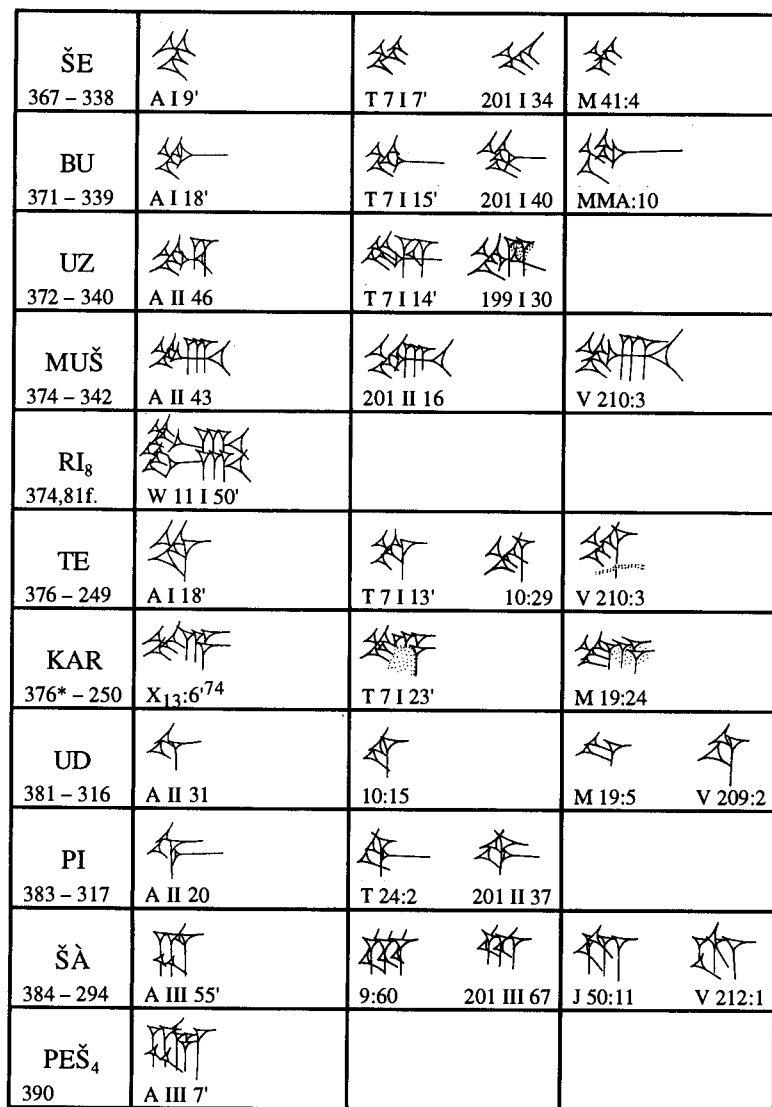 ŠE
367 – 338 A I 9' T 7 I 7' 201 I 34 M 41:4
BU
371 – 339 A I 18' T 7 I 15' 201 I 40 MMA:10
UZ
372 – 340 A II 46 T 7 I 14' 199 I 30
MUŠ
374 – 342 A II 43 201 II 16 V 210:3
RI₈
374,81f. W 11 I 50'
TE
376 – 249 A I 18' T 7 I 13' 10:29 V 210:3
KAR
376* – 250 X₁₃:6'⁷⁴ T 7 I 23' M 19:24
UD
381 – 316 A II 31 10:15 M 19:5 V 209:2
PI
383 – 317 A II 20 T 24:2 201 II 37
ŠÀ
384 – 294 A III 55' 9:60 201 III 67 J 50:11 V 212:1
PEŠ₄
390 A III 7'